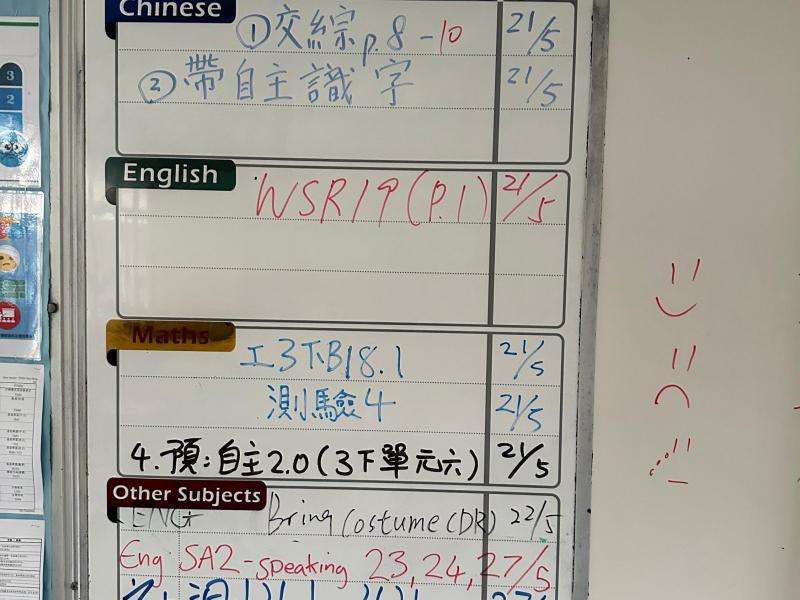 Chinese
①交綜p.8-10 21/5
②帶自主識字 21/5
English
WSR19(P.1) 21/5
Maths
工3下B18.1 21/5
測驗4 21/5
4.預:自主2.0(3下單元六) 21/5
Other Subjects
ENG Bring Costume(DR) 22/5
Eng SA2-speaking 23,24,27/5
3
2